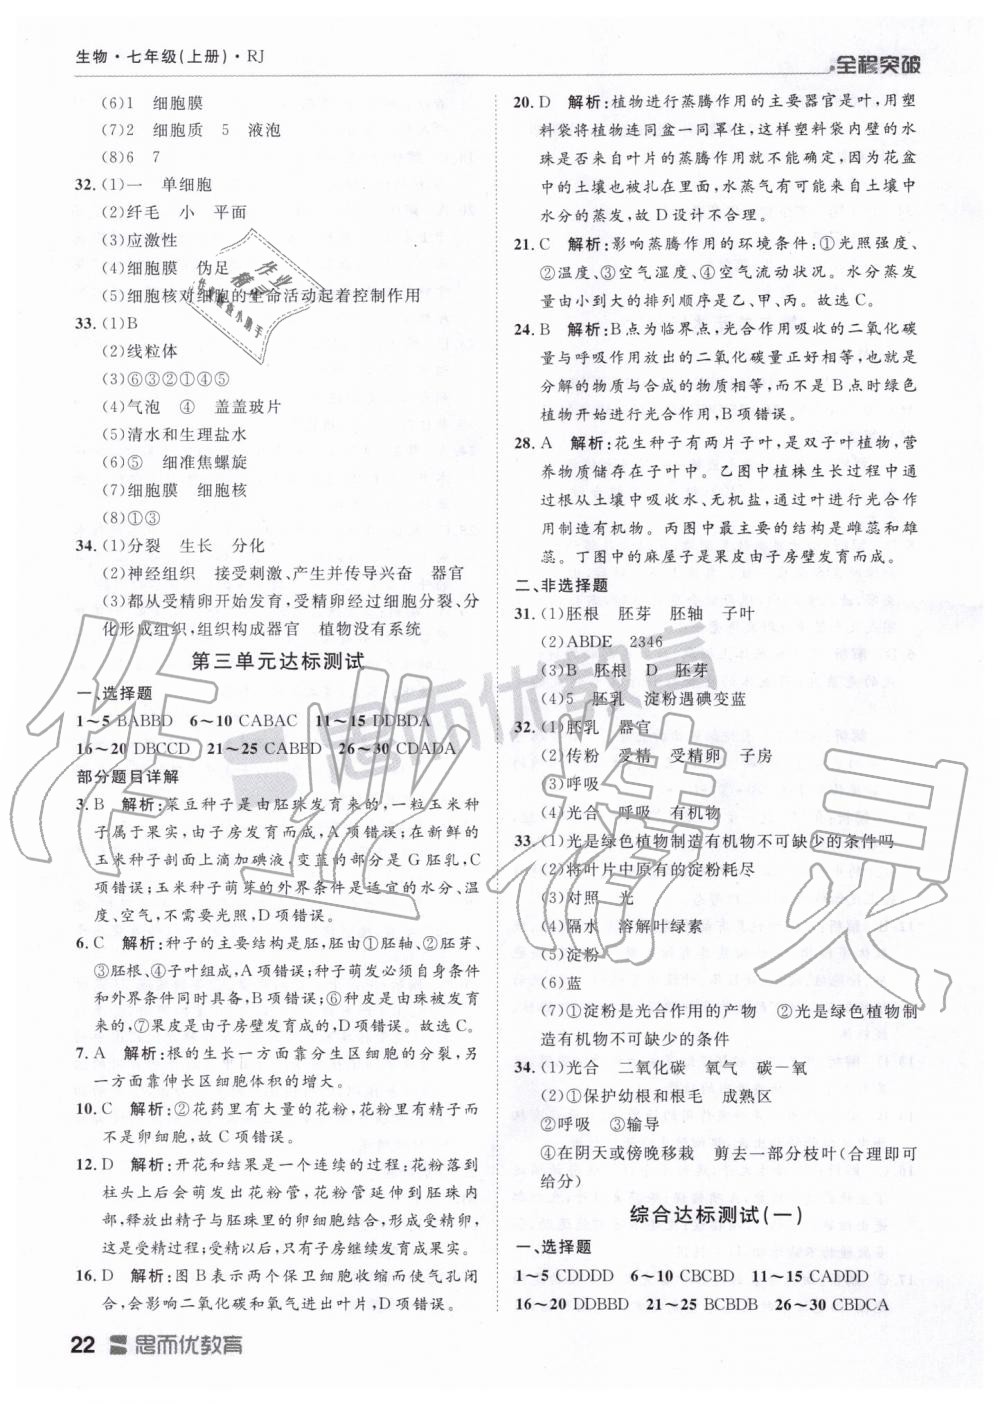 生物·七年级(上册)·RJ
全程突破
(6)1 细胞膜
(7)2 细胞质 5 液泡
(8)6 7
32.(1)一 单细胞
(2)纤毛 小 平面
(3)应激性
(4)细胞膜 伪足
(5)细胞核对细胞的生命活动起着控制作用
33.(1)B
(2)线粒体
(3)⑥③②①④⑤
(4)气泡 ④ 盖盖玻片
(5)清水和生理盐水
(6)⑤ 细准焦螺旋
(7)细胞膜 细胞核
(8)①③
34.(1)分裂 生长 分化
(2)神经组织 接受刺激、产生并传导兴奋 器官
(3)都从受精卵开始发育,受精卵经过细胞分裂、分
化形成组织,组织构成器官 植物没有系统
第三单元达标测试
一、选择题
1～5 BABBD 6～10 CABAC 11～15 DDBDA
16～20 DBCCD 21～25 CABBD 26～30 CDADA
部分题目详解
3. B 解析:菜豆种子是由胚珠发育来的,一粒玉米种
子属于果实,由子房发育而成,A项错误;在新鲜的
玉米种子剖面上滴加碘液,变蓝的部分是G胚乳,C
项错误;玉米种子萌芽的外界条件是适宜的水分、温
度、空气,不需要光照,D项错误。
6. C 解析:种子的主要结构是胚,胚由①胚轴、②胚芽、
③胚根、④子叶组成,A项错误;种子萌发必须自身条件
和外界条件同时具备,B项错误;⑥种皮是由珠被发育
来的,⑦果皮是由子房壁发育成的,D项错误。故选C。
7. A 解析:根的生长一方面靠分生区细胞的分裂,另
一方面靠伸长区细胞体积的增大。
10. C 解析:②花药里有大量的花粉,花粉里有精子而
不是卵细胞,故C项错误。
12. D 解析:开花和结果是一个连续的过程:花粉落到
柱头上后会萌发出花粉管,花粉管延伸到胚珠内
部,释放出精子与胚珠里的卵细胞结合,形成受精卵,
这是受精过程;受精以后,只有子房继续发育成果实。
16. D 解析:图B表示两个保卫细胞收缩而使气孔闭
合,会影响二氧化碳和氧气进出叶片,D项错误。
20. D 解析:植物进行蒸腾作用的主要器官是叶,用塑
料袋将植物连同盆一同罩住,这样塑料袋内壁的水
珠是否来自叶片的蒸腾作用就不能确定,因为花盆
中的土壤也被扎在里面,水蒸气有可能来自土壤中
水分的蒸发,故D设计不合理。
21. C 解析:影响蒸腾作用的环境条件:①光照强度、
②温度、③空气湿度、④空气流动状况。水分蒸发
量由小到大的排列顺序是乙、甲、丙。故选C。
24. B 解析:B点为临界点,光合作用吸收的二氧化碳
量与呼吸作用放出的二氧化碳量正好相等,也就是
分解的物质与合成的物质相等,而不是B点时绿色
植物开始进行光合作用,B项错误。
28. A 解析:花生种子有两片子叶,是双子叶植物,营
养物质储存在子叶中。乙图中植株生长过程中通
过根从土壤中吸收水、无机盐,通过叶进行光合作
用制造有机物。丙图中最主要的结构是雌蕊和雄
蕊。丁图中的麻屋子是果皮由子房壁发育而成。
二、非选择题
31.(1)胚根 胚芽 胚轴 子叶
(2)ABDE 2346
(3)B 胚根 D 胚芽
(4)5 胚乳 淀粉遇碘变蓝
32.(1)胚乳 器官
(2)传粉 受精 受精卵 子房
(3)呼吸
(4)光合 呼吸 有机物
33.(1)光是绿色植物制造有机物不可缺少的条件吗
(2)将叶片中原有的淀粉耗尽
(3)对照 光
(4)隔水 溶解叶绿素
(5)淀粉
(6)蓝
(7)①淀粉是光合作用的产物 ②光是绿色植物制
造有机物不可缺少的条件
34.(1)光合 二氧化碳 氧气 碳－氧
(2)①保护幼根和根毛 成熟区
②呼吸 ③输导
④在阴天或傍晚移栽 剪去一部分枝叶(合理即可
给分)
综合达标测试(一)
一、选择题
1～5 CDDDD 6～10 CBCBD 11～15 CADDD
16～20 DDBBD 21～25 BCBDB 26～30 CBDCA
22 思而优教育
思而优教育
作业精灵
作业
精灵
作业检查小助手